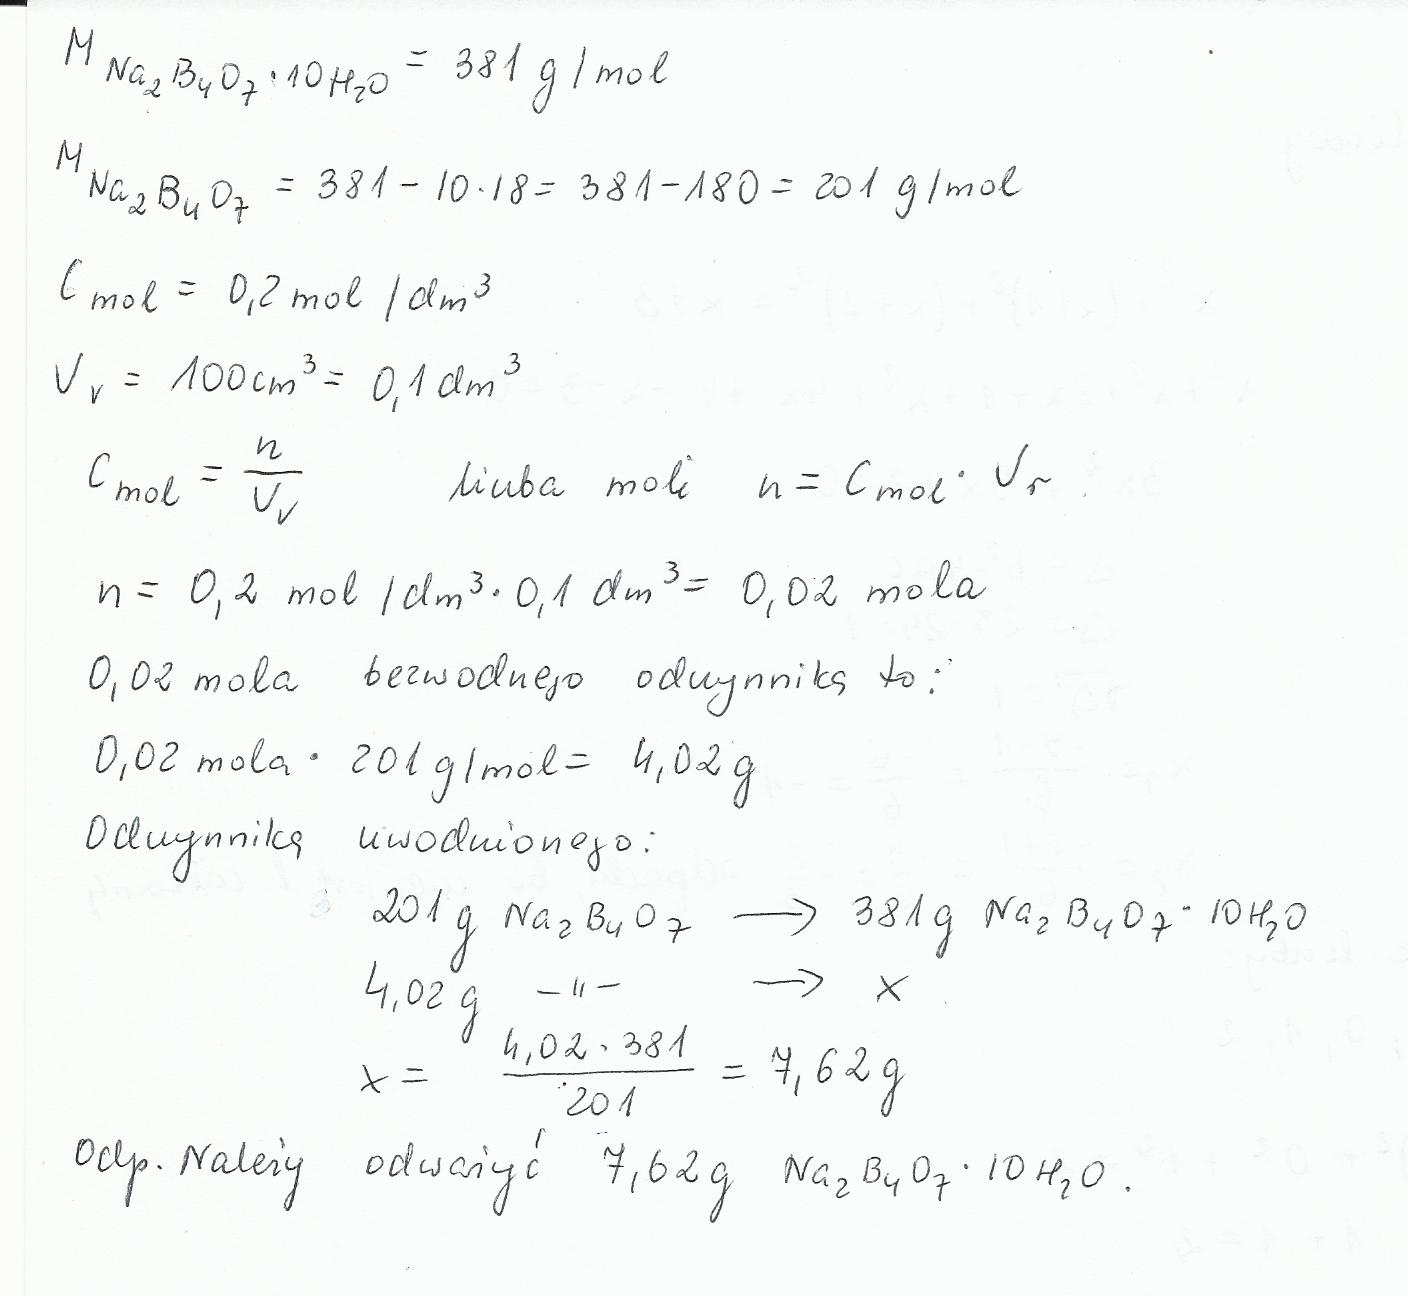 M Na₂B₄O₇·10H₂O = 381 g/mol
M Na₂B₄O₇ = 381 - 10·18 = 381 - 180 = 201 g/mol
Cmol = 0,2 mol/dm³
Vr = 100cm³ = 0,1 dm³
Cmol = n/Vr liczba moli n = Cmol · Vr
n = 0,2 mol/dm³ · 0,1 dm³ = 0,02 mola
0,02 mola bezwodnego odczynnika to:
0,02 mola · 201 g/mol = 4,02 g
Odczynnika uwodnionego:
201 g Na₂B₄O₇ → 381 g Na₂B₄O₇·10H₂O
4,02 g -"- → x
x = 4,02·381/201 = 7,62 g
Odp. Należy odważyć 7,62 g Na₂B₄O₇·10H₂O.